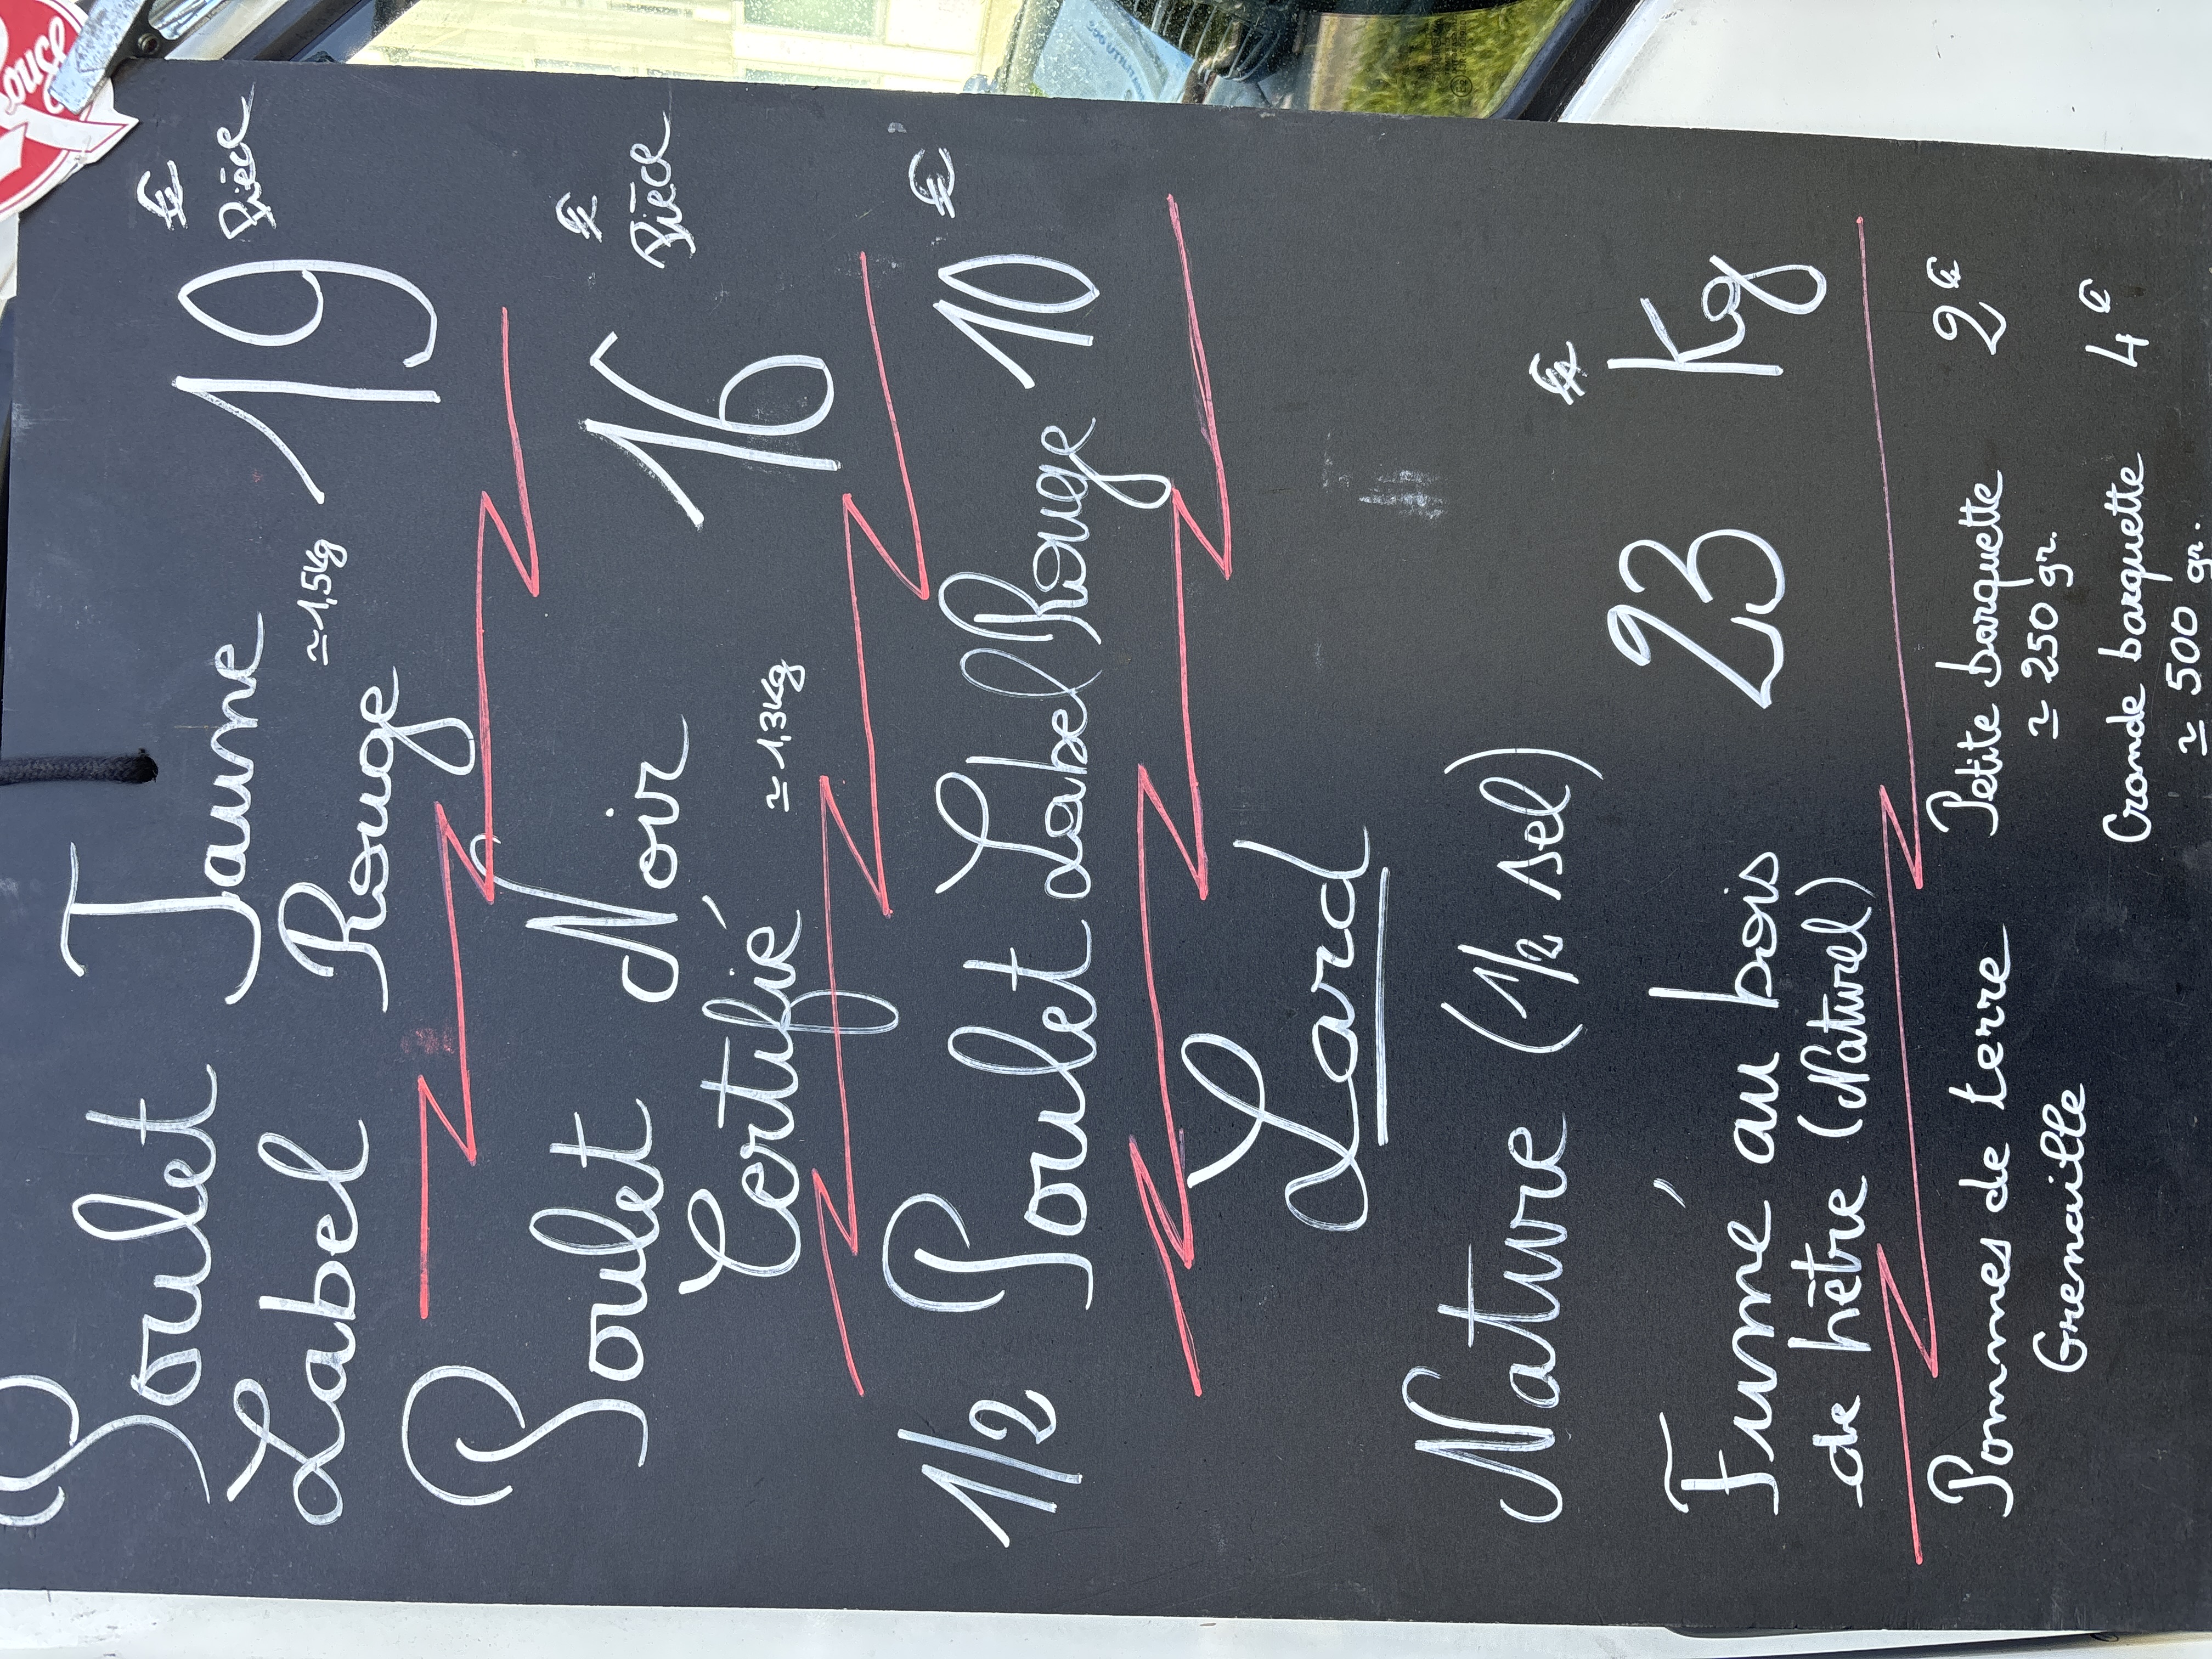 Poulet Jaune
Label Rouge
≃1,5kg
19 €
Pièce
Poulet Noir
Certifié
≃1,3Kg
16 €
Pièce
1/2 Poulet Label Rouge 10 €
Lard
Nature (1/2 sel)
Fumé au bois
de hêtre (Naturel)
23 € Kg
Pommes de terre
Grenaille
Petite barquette 2€
≃ 250 gr.
Grande barquette 4€
≃ 500 gr.